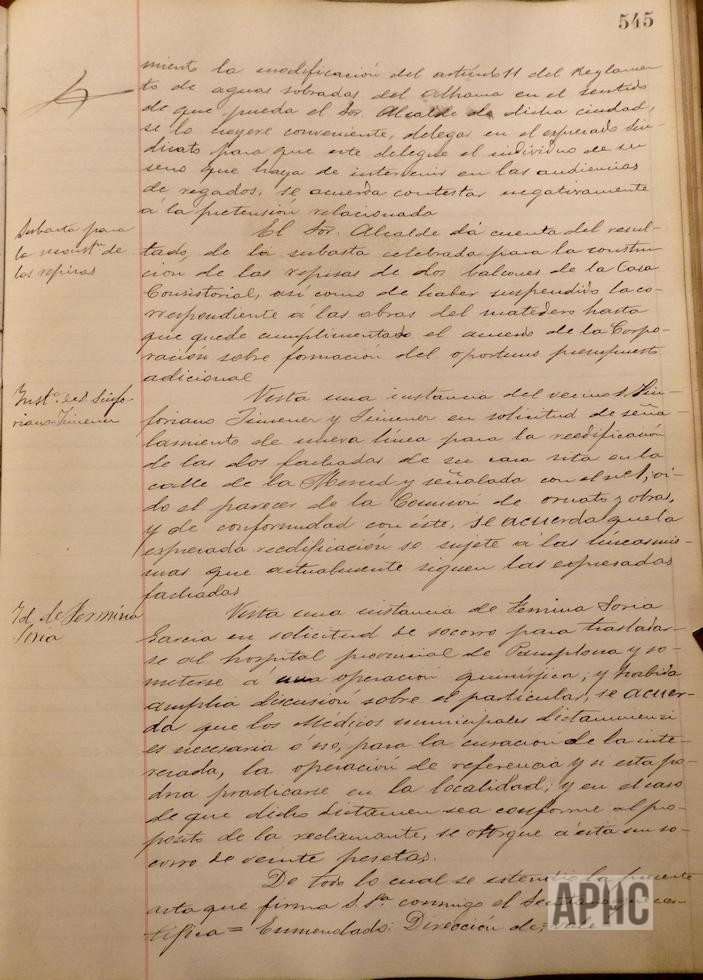 545
miento la modificación del artículo 11 del Reglamen-
to de aguas sobradas del Alhama en el sentido
de que pueda el Sor. Alcalde de dicha ciudad,
se lo creyere conveniente, delegar en el expresado Sin-
dicato para que este delegue el individuo de su
seno que haya de intervenir en las audiencias
de regados, se acuerda contestar negativamente
á la pretensión relacionada
Subasta para
la const.ⁿ de
las repisas
El Sor. Alcalde dá cuenta del resul-
tado de la subasta celebrada para la construc-
cion de las repisas de dos balcones de la Casa
Consistorial, así como de haber suspendido la co-
rrespondiente á las obras del matadero hasta
que quede cumplimentado el acuerdo de la Corpo-
ración sobre formación del oportuno presupuesto
adicional
Inst.ª de D. Sinfo-
riano Jimenez
Vista una instancia del vecino D. Sin-
foriano Jimenez y Jimenez en solicitud de seña-
lamiento de nueva línea para la reedificación
de las dos fachadas de su casa sita en la
calle de la Merced y señalada con el nº 1; oi-
do el parecer de la Comisión de ornato y obras,
y de conformidad con este, se acuerda que la
expresada reedificación se sujete á las líneas mis-
mas que actualmente siguen las expresadas
fachadas
Id. de Fermina
Soria
Vista una instancia de Fermina Soria
Garcia en solicitud de socorro para trasladar-
se al hospital provincial de Pamplona y so-
meterse á una operación quirúrjica; y habida
amplia discusión sobre el particular, se acuer-
da que los Médicos municipales dictaminen si
es necesaria ó nó, para la curación de la inte-
resada, la operación de referencia y si esta po-
dria practicarse en la localidad; y en el caso
de que dicho dictamen sea conforme al pro-
pósito de la reclamante, se otorgue á esta un so-
corro de veinte pesetas.
De todo lo cual se extendió la presente
acta que firma S. Sª conmigo el Secretario que cer-
tífica = Enmendado: Dirección de; vale
APHC